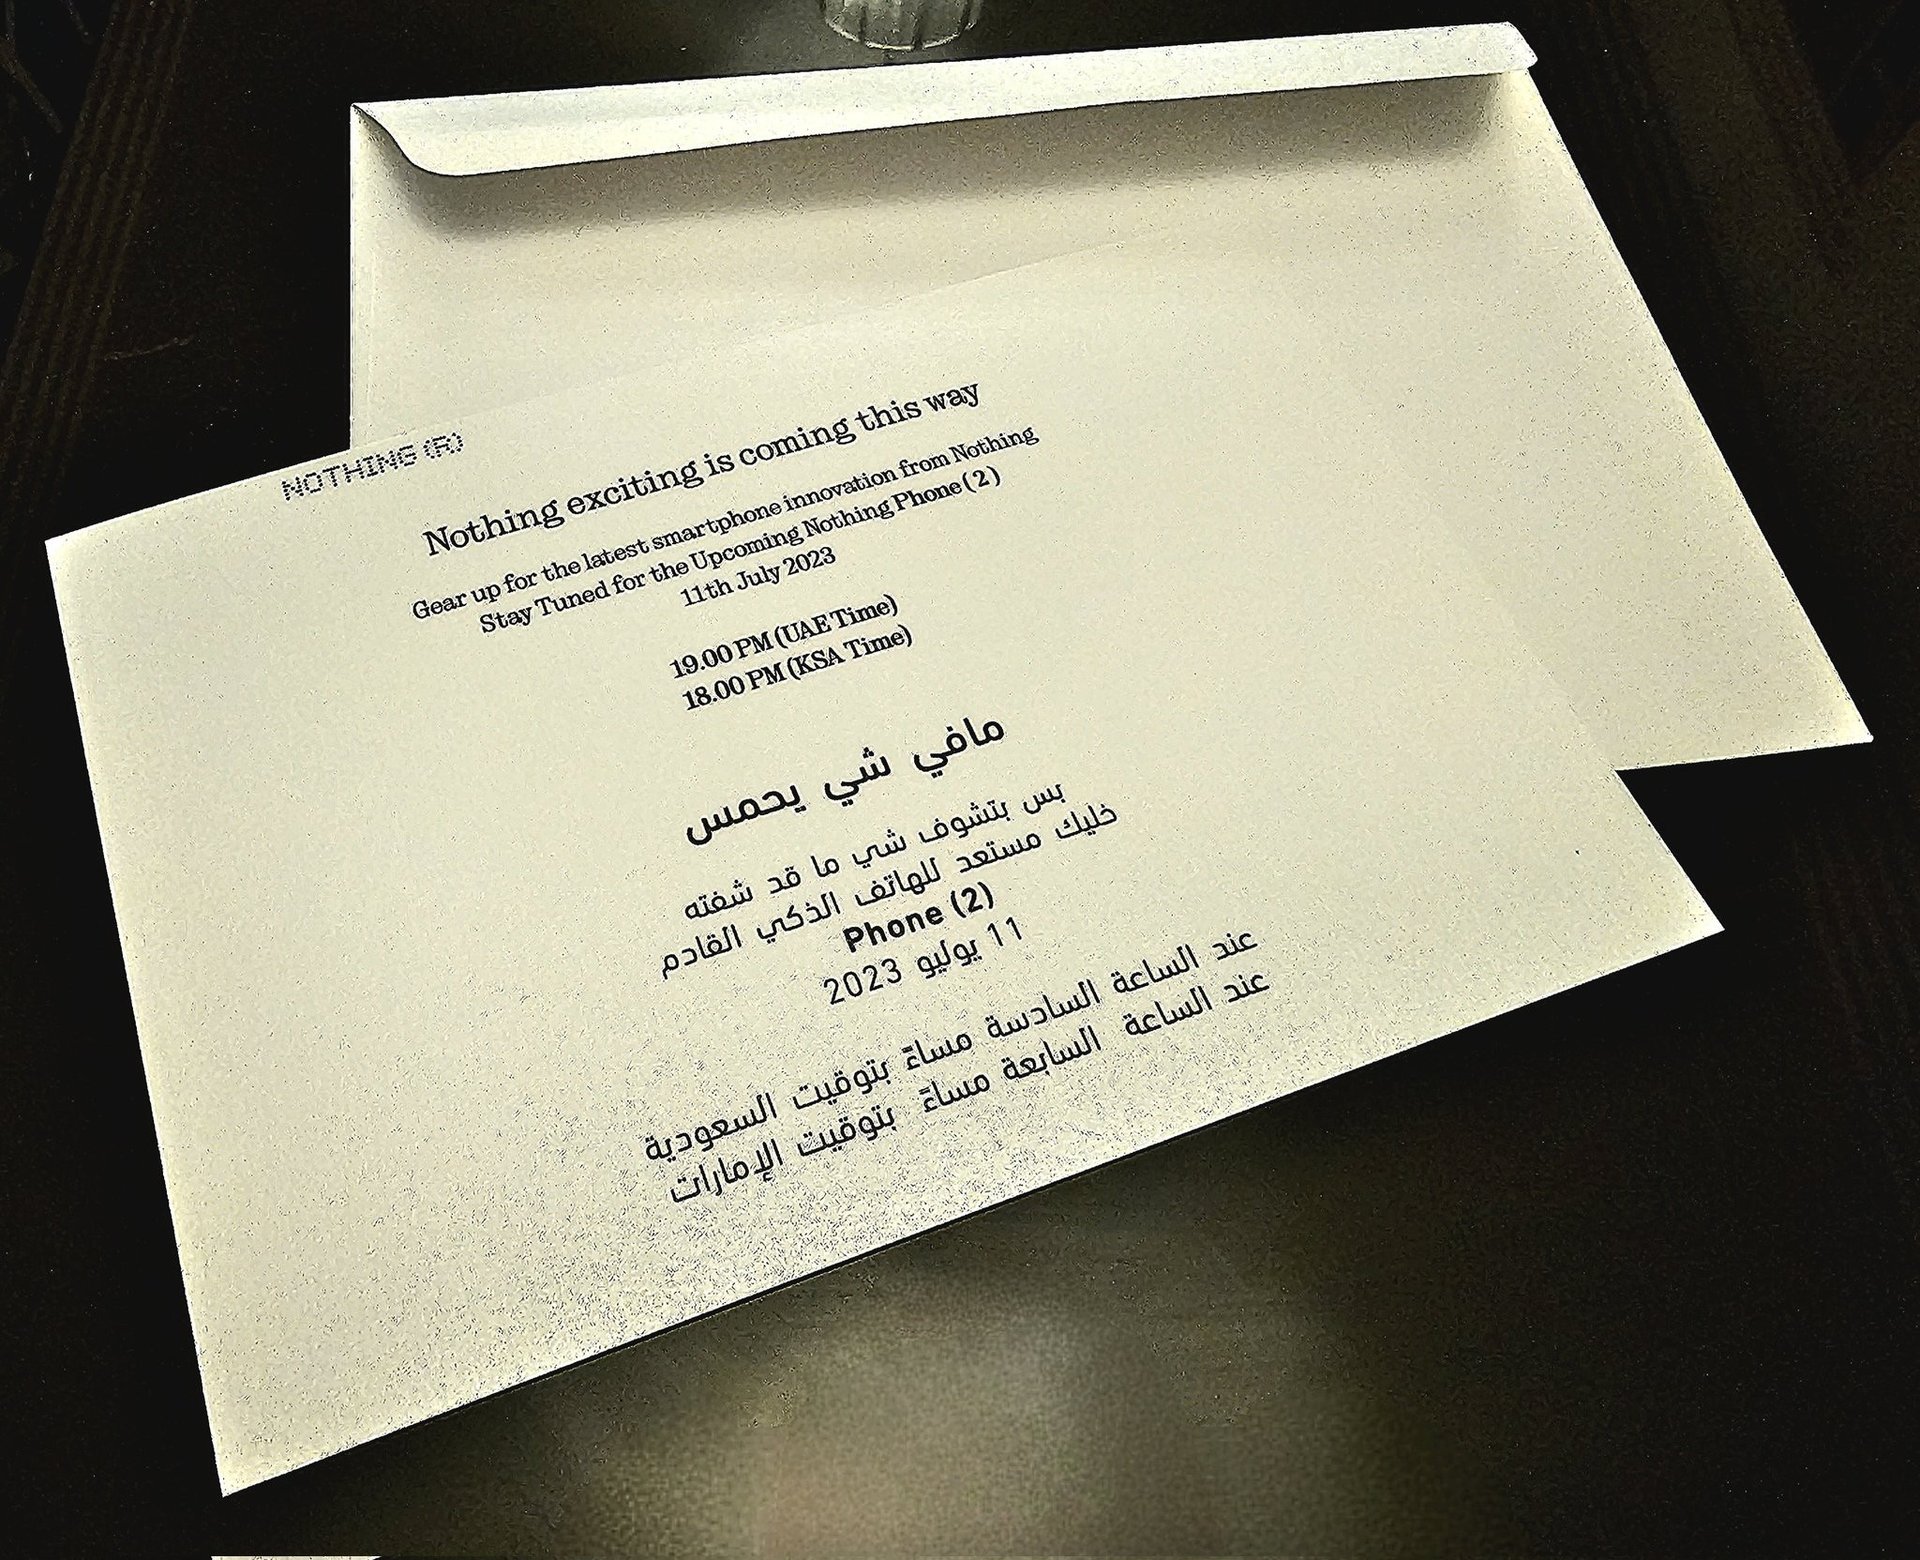 NOTHING (R)
Nothing exciting is coming this way
Gear up for the latest smartphone innovation from Nothing
Stay Tuned for the Upcoming Nothing Phone ( 2 )
11th July 2023
19.00 PM (UAE Time)
18.00 PM (KSA Time)
مافي شي يحمس
بس بتشوف شي ما قد شفته
خليك مستعد للهاتف الذكي القادم
Phone (2)
11 يوليو 2023
عند الساعة السادسة مساءً بتوقيت السعودية
عند الساعة السابعة مساءً بتوقيت الإمارات